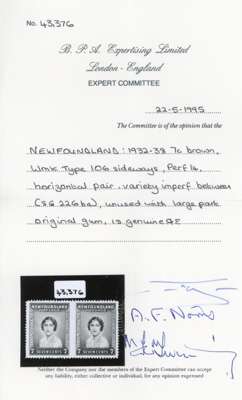 No. 43,376
B. P. A. Expertising Limited
London - England
EXPERT COMMITTEE
22-5-1995
The Committee is of the opinion that the
NEWFOUNDLAND: 1932-38 7c brown,
Wmk Type 106 sideways, Perf 14,
horizontal pair, variety imperf between
(SG 226ba), unused with large part
original gum, is genuine
43,376
NEWFOUNDLAND NEWFOUNDLAND
7 SEVEN CENTS 7 7 SEVEN CENTS 7
A. F. Norris
Neither the Company nor the members of the Expert Committee can accept
any liability, either collective or individual, for any opinion expressed